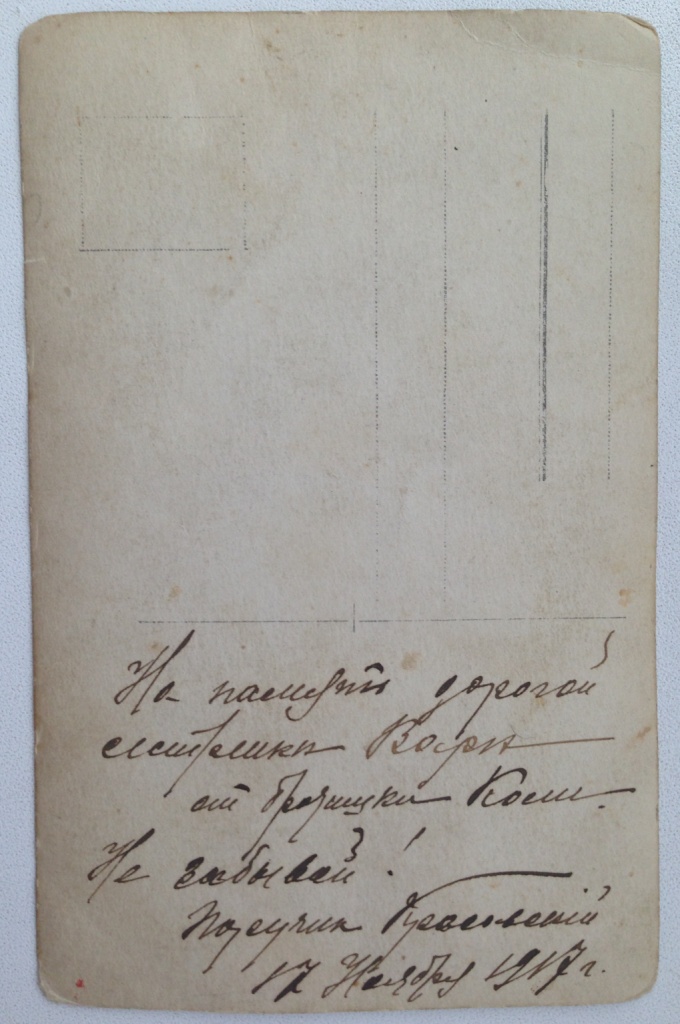 На память дорогой
сестрички Вари
от братишки Коли.
Не забывай!
Поручик
17 Ноября 1917 г.